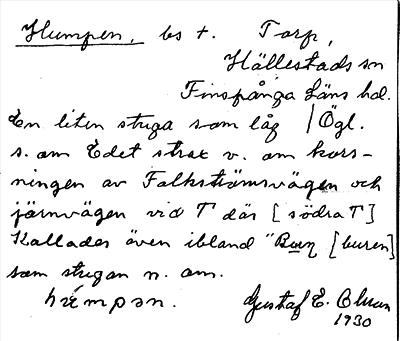 Humpen, bs t. Torp,
Hällestads sn
Finspånga läns hd.
En liten stuga som låg / Ögl.
s. om Edet strax v. om kors-
ningen av Falkströmsvägen och
järnvägen vid T där [södra T]
Kallades även ibland "Burn [buren]
som stugan n. om.
hǘmpən. Gustaf E. Ohman
1930